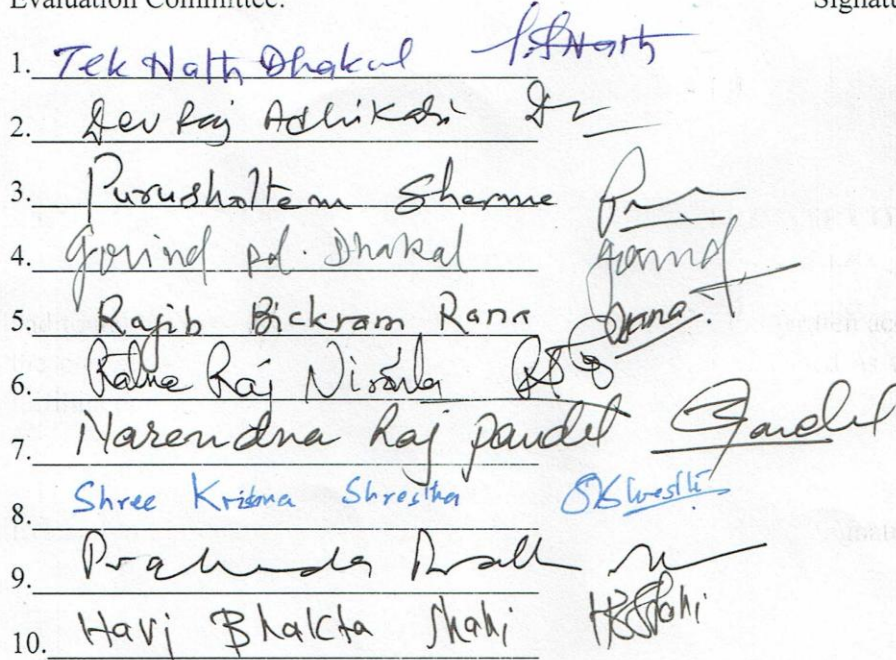 Evaluation Committee:
1. Tek Nath Dhakal
2. Dev Raj Adhikari
3. Purushottam Sharma
4. Govind pd. Dhakal
5. Rajib Bickram Rana Rana
6. Ratna Raj Niroula
7. Narendra Raj Paudel Paudel
8. Shree Krishna Shrestha SKShrestha
9.
10. Hari Bhakta Shahi HBShahi